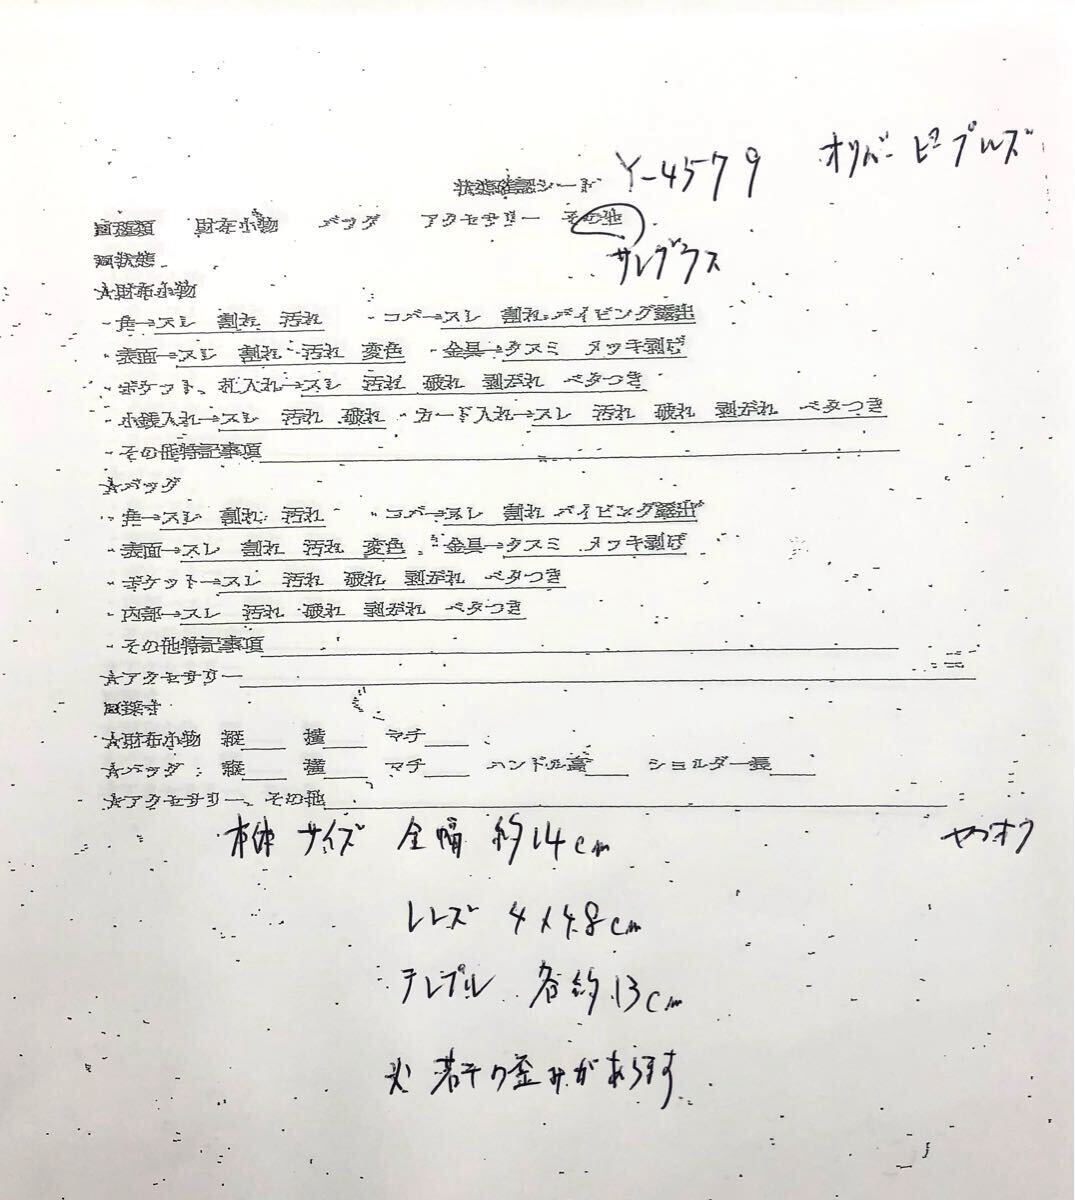 状態確認シート Y-4579 オリバーピープルズ
□種類 財布小物 バッグ アクセサリー その他
サングラス
□状態
☆財布小物
・角→スレ 割れ 汚れ ・コバ→スレ 割れ パイピング露出
・表面→スレ 割れ 汚れ 変色 ・金具→クスミ メッキ剥げ
・ポケット、札入れ→スレ 汚れ 破れ 剥がれ ベタつき
・小銭入れ→スレ 汚れ 破れ ・カード入れ→スレ 汚れ 破れ 剥がれ ベタつき
・その他特記事項
☆バッグ
・角→スレ 割れ 汚れ ・コバ→スレ 割れ パイピング露出
・表面→スレ 割れ 汚れ 変色 ・金具→クスミ メッキ剥げ
・ポケット→スレ 汚れ 破れ 剥がれ ベタつき
・内部→スレ 汚れ 破れ 剥がれ ベタつき
・その他特記事項
☆アクセサリー
□採寸
☆財布小物 縦 横 マチ
☆バッグ 縦 横 マチ ハンドル高 ショルダー長
☆アクセサリー、その他
本体サイズ 全幅 約14cm ヤフオク
レンズ 4×4.8cm
テンプル 各約13cm
※若干の歪みがあります